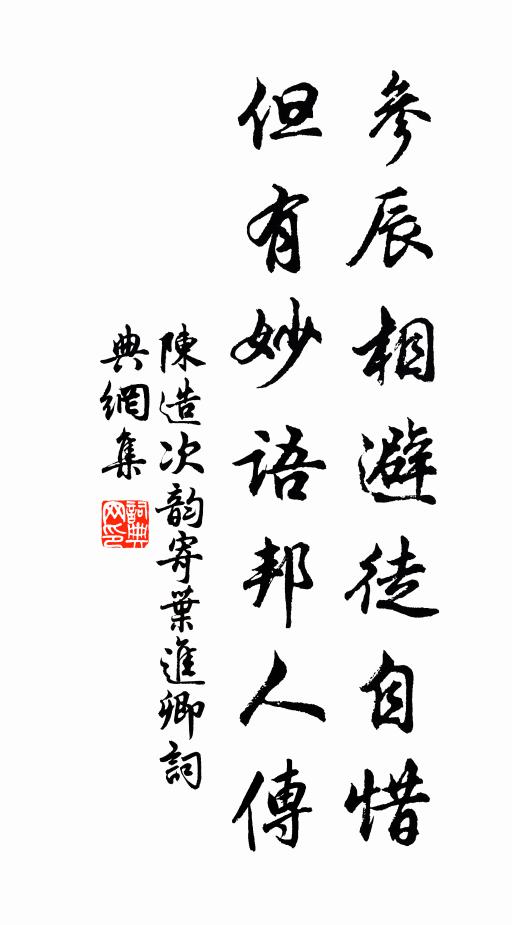 參辰相避徒自惜
但有妙語邦人傳
陳造次韵寄葉進卿詞
典網集
詞典
网印